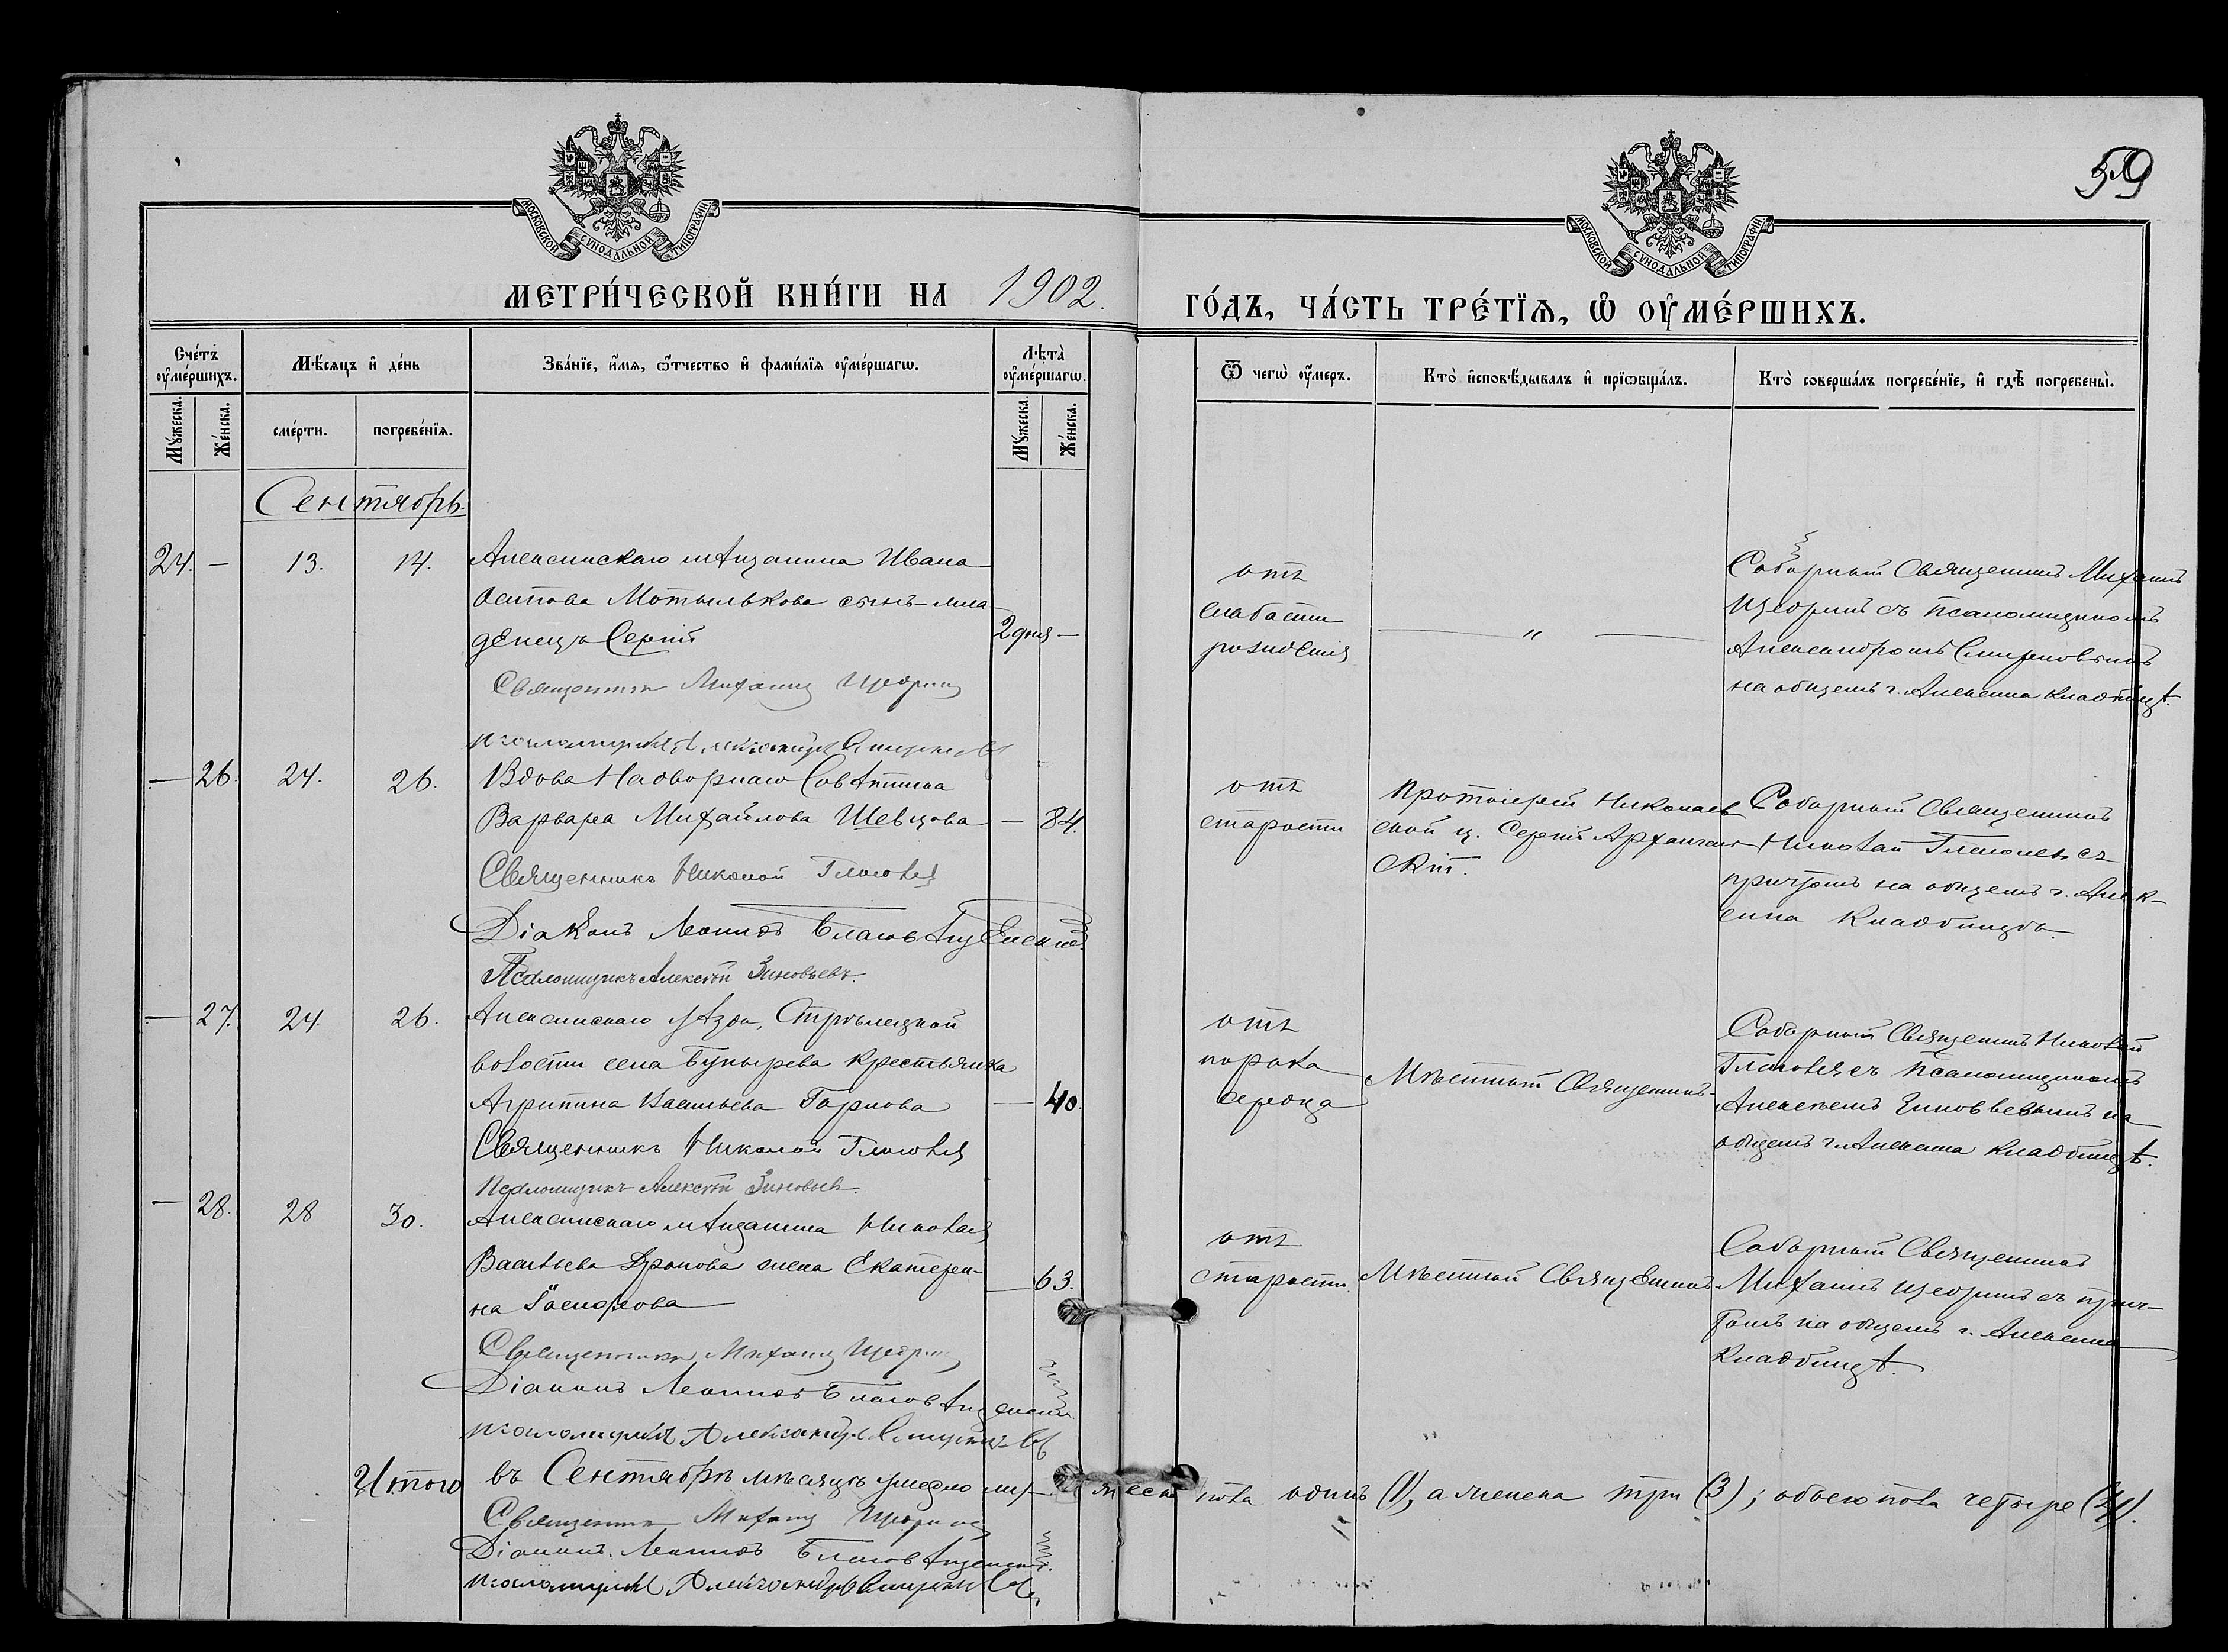 59
МОСКОВСКОЙ СѴНОДАЛЬНОЙ ТИПОГРАФІИ
МОСКОВСКОЙ СѴНОДАЛЬНОЙ ТИПОГРАФІИ
МЕТРИ́ЧЕСКОЙ КНИ́ГИ НА 1902. ГО́ДЪ, ЧА́СТЬ ТРЕ́ТЇѦ, Ѡ҆ ОУ҆МЕ́РШИХЪ.
Сче́тъ оу҆ме́ршихъ.
Мꙋ́жеска.
Же́нска.
Мѣ́сяцъ и҆ де́нь
сме́рти.
погребе́нїѧ.
Зва́нїе, и҆́мѧ, ѻ҆́тчество и҆ фами́лїѧ оу҆ме́ршагѡ.
Лѣ̀та оу҆ме́ршагѡ.
Мꙋ́жеска.
Же́нска.
Ѿ чегѡ̀ оу҆́меръ.
Кто̀ и҆сповѣ́дывалъ и҆ прїѡбща́лъ.
Кто̀ соверша́лъ погребе́нїе, и҆ гдѣ̀ погребены̀.
Сентябрь.
24. — 13. 14.
Алексинскаго мѣщанина Ивана
Осипова Мотылькова сынъ-мла
денецъ Сергій
2 дня —
Священникъ Михаилъ Щегринъ
псаломщикъ Александръ Смирновъ
отъ
слабости
рожденія
— " —
Соборный Священникъ Михаилъ
съ псаломщикомъ
Александромъ Смирновымъ
на общемъ г. Алексина кладбищѣ.
— 26. 24. 26.
Вдова Надворнаго Совѣтника
Варвара Михайлова Шевцова — 84.
Священникъ Николай Глаголевъ
Діаконъ Леонидъ Благовѣщенскій
Псаломщикъ Алексѣй Зиновьевъ.
отъ
старости
Протоіерей Николаев
ской ц. Сергій Архангель
скій.
Соборный Священникъ
Николай Глаголевъ съ
причтомъ на общемъ г. Алек-
сина кладбищѣ.
— 27. 24. 26.
Алексинскаго уѣзда, Стрѣлецкой
волости села Бунырева крестьянка
Агрипина Васильева Горлова — 40.
Священникъ Николай Глаголевъ
Псаломщикъ Алексѣй Зиновьевъ.
отъ
порока
сердца
Мѣстный Священникъ.
Соборный Священникъ Николай
Глаголевъ съ псаломщикомъ
Алексѣемъ Зиновьевымъ на
общемъ г. Алексина кладбищѣ.
— 28. 28 30.
Алексинскаго мѣщанина Николая
Васильева жена Екатери-
на — 63.
Священникъ Михаилъ
Діаконъ Леонидъ Благовѣщенскій
псаломщикъ Александръ Смирновъ
отъ
старости
Мѣстный Священникъ
Соборный Священникъ
Михаилъ съ прич-
томъ на общемъ г. Алексина
кладбищѣ.
Итого въ Сентябрѣ мѣсяцѣ умерло мужеска пола одинъ (1), а женска три (3); обоего пола четыре (4).
Священникъ Михаилъ
Діаконъ Леонидъ Благовѣщенскій.
псаломщикъ Александръ Смирновъ